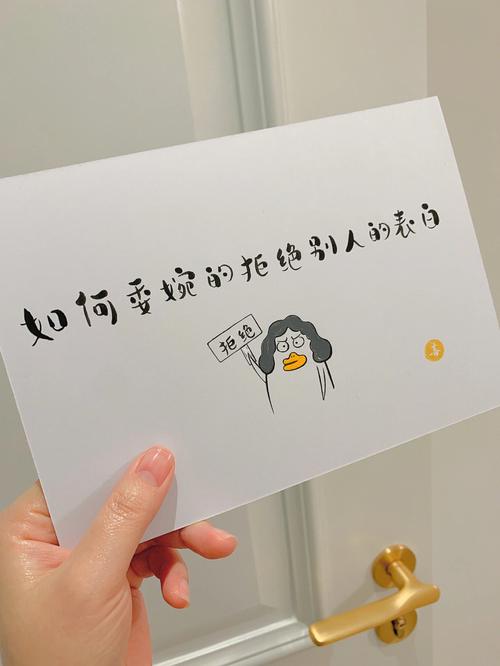 如何委婉的拒绝别人的表白
拒绝